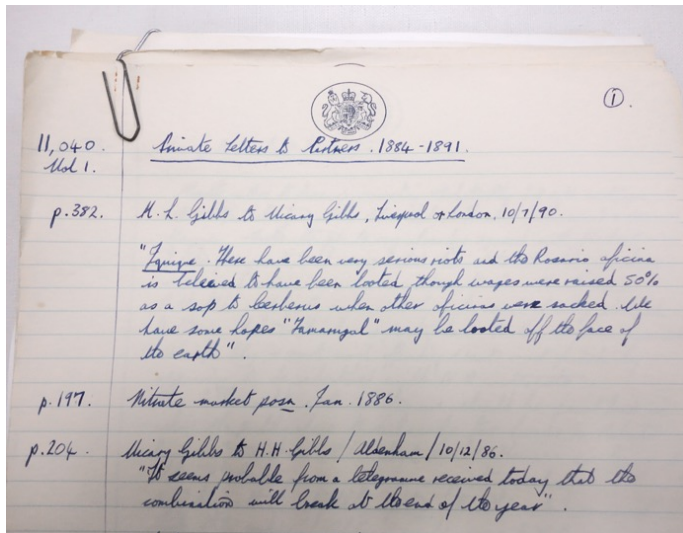 ①.
11,040. Private Letters to Partners. 1884-1891.
Vol 1.
p.382. H. L. Gibbs to Vicary Gibbs, Liverpool or London, 10/7/90.
"Iquique. There have been very serious riots and the Rosario oficina
is believed to have been looted, though wages were raised 50%
as a sop to Cerberus when other oficinas were sacked. We
have some hopes "Tamarugal" may be looted off the face of
the earth".
p.197. Nitrate market posn. Jan. 1886.
p.204. Vicary Gibbs to H.H. Gibbs / Aldenham / 10/12/86.
"It seems probable from a telegramme received today that the
combination will break at the end of the year".